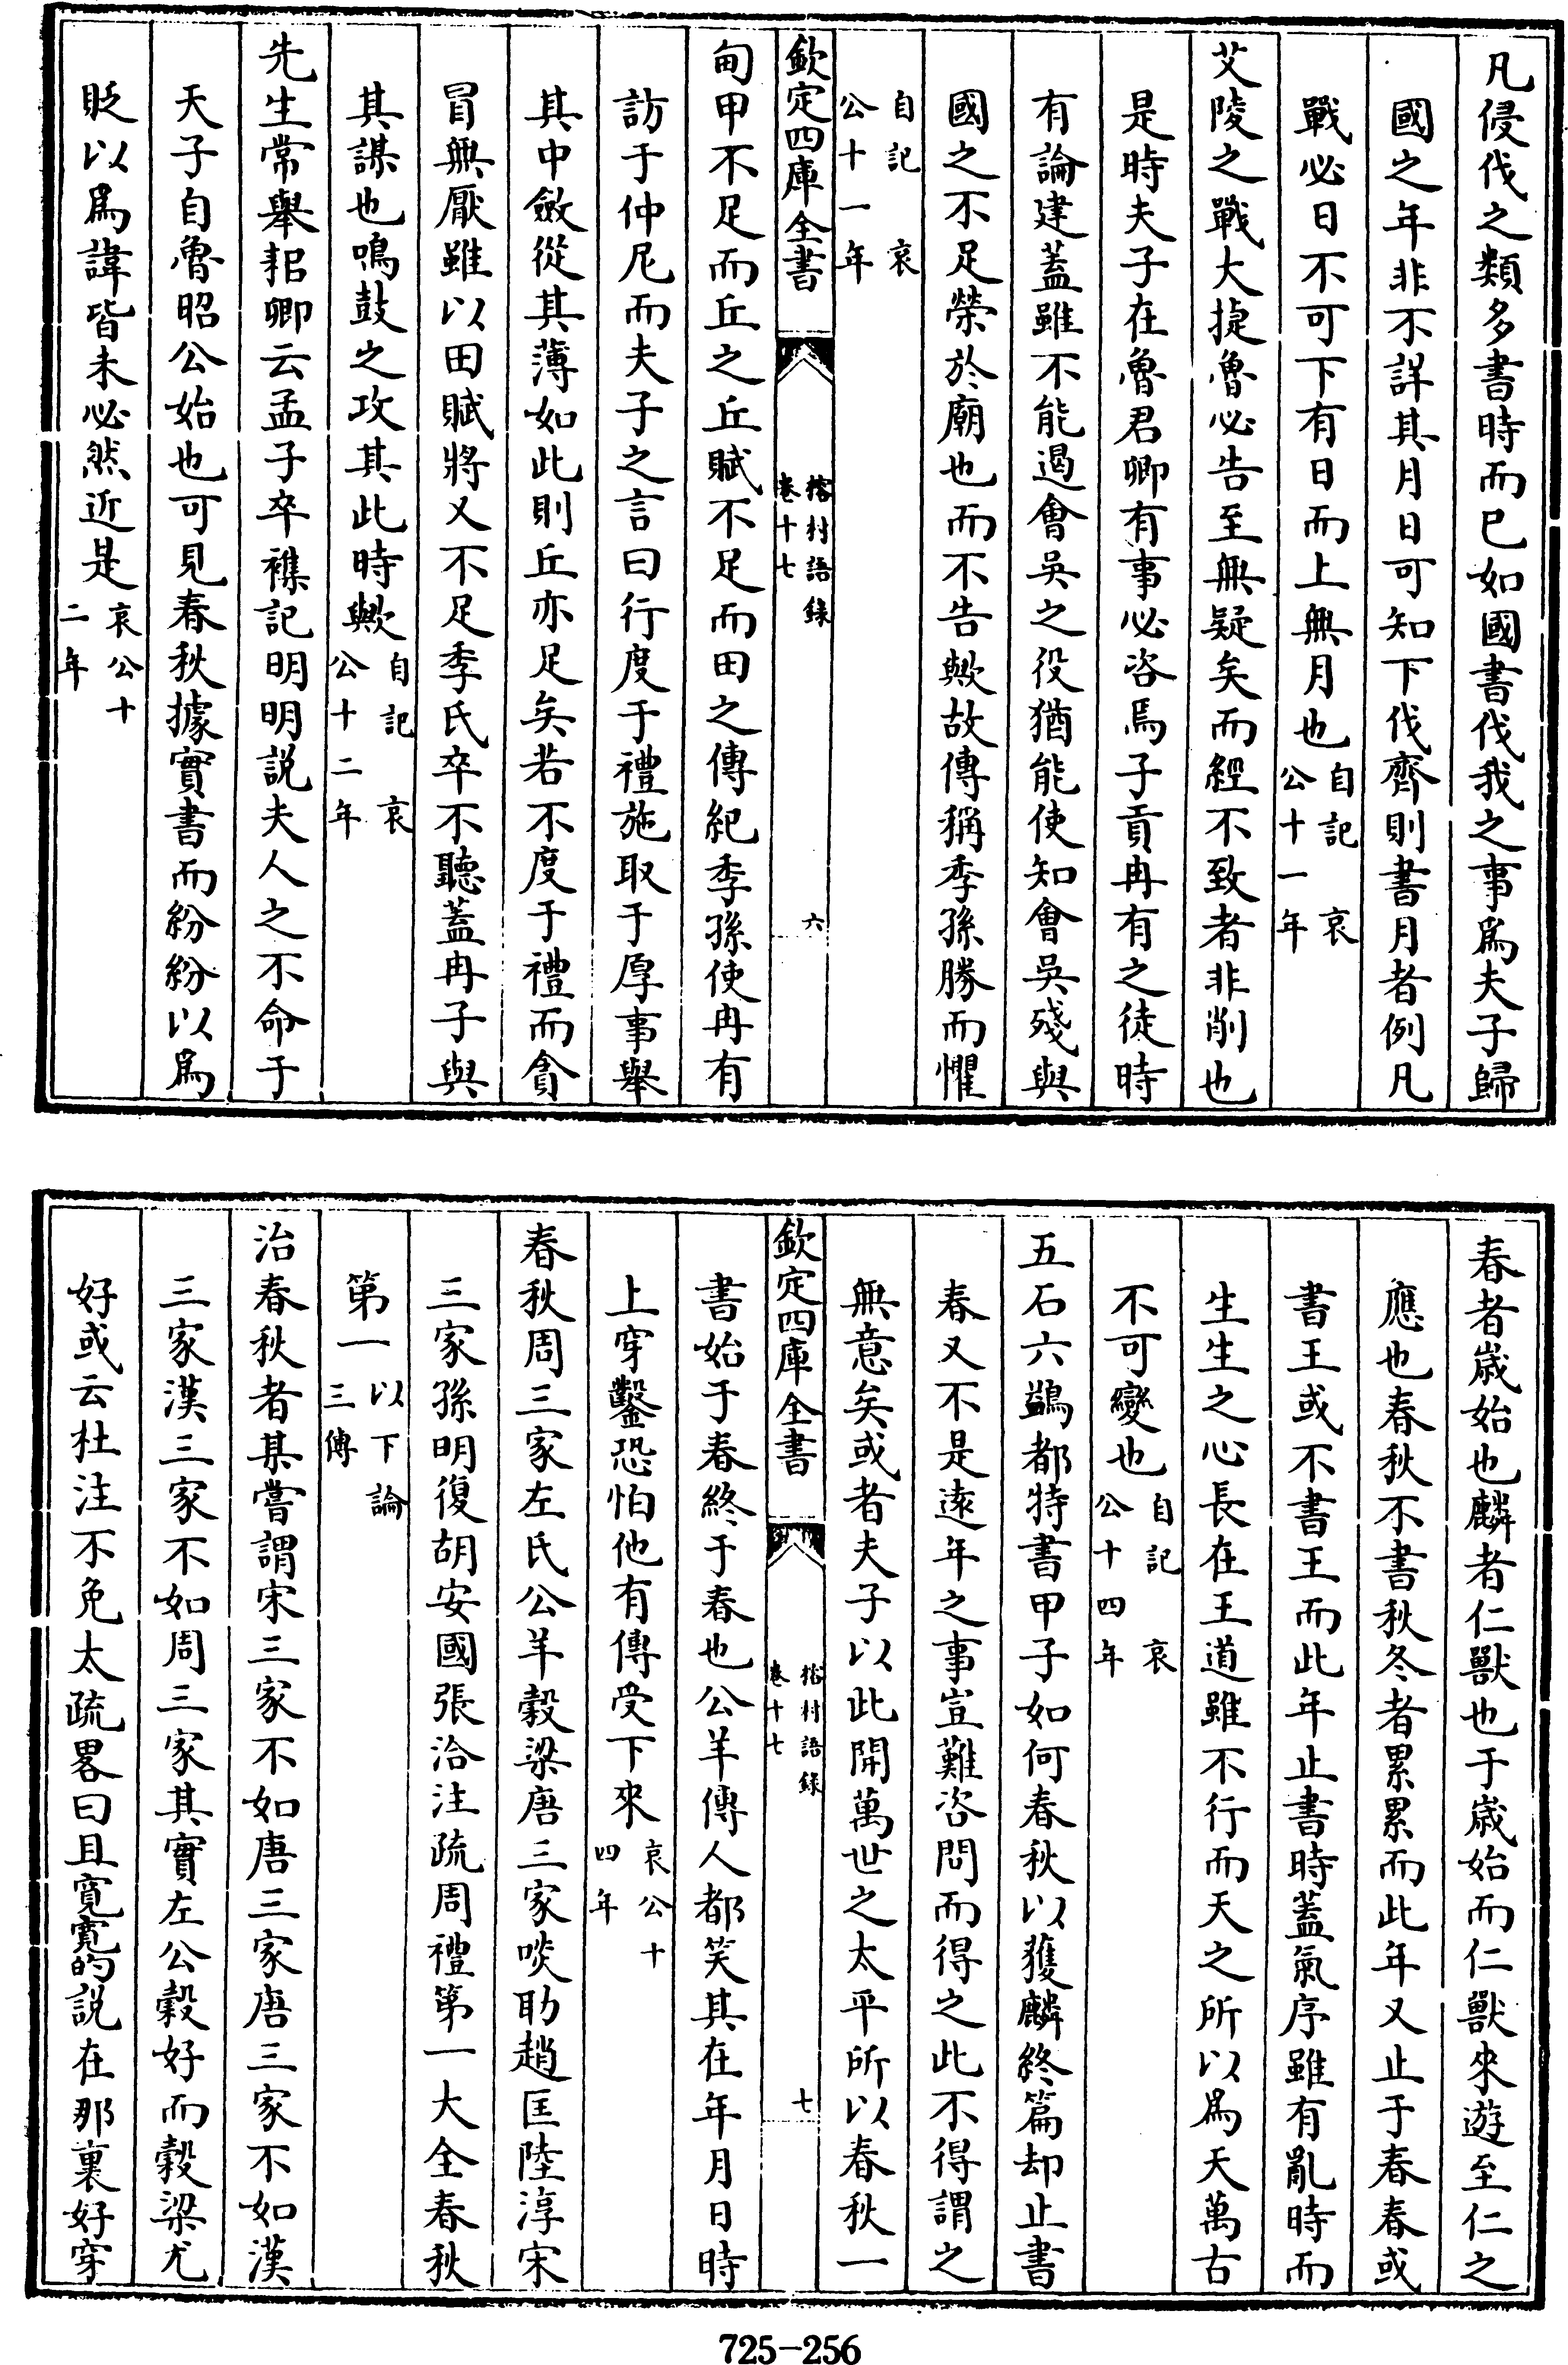 凡侵伐之類多書時而已如國書伐我之事爲夫子歸
國之年非不詳其月日可知下伐齊則書月者例凡
戰必日不可下有日而上無月也自記 哀公十一年
艾陵之戰大捷魯必告至無疑矣而經不致者非削也
是時夫子在魯君卿有事必咨焉子貢冉有之徒時
有論建蓋雖不能遏會吳之役猶能使知會吳殘與
國之不足榮於廟也而不告歟故傳稱季孫勝而懼
自記 哀公十一年
欽定四庫全書 榕村語錄卷十七 六
甸甲不足而丘之丘賦不足而田之傳紀季孫使冉有
訪于仲尼而夫子之言曰行度于禮施取于厚事舉
其中斂從其薄如此則丘亦足矣若不度于禮而貪
冒無厭雖以田賦將又不足季氏卒不聽蓋冉子與
其謀也鳴鼓之攻其此時歟自記 哀公十二年
先生常舉耜卿云孟子卒襍記明明説夫人之不命于
天子自魯昭公始也可見春秋據實書而紛紛以爲
貶以爲諱皆未必然近是哀公十二年
春者歲始也麟者仁獸也于歲始而仁獸來遊至仁之
應也春秋不書秋冬者累累而此年又止于春春或
書王或不書王而此年止書時蓋氣序雖有亂時而
生生之心長在王道雖不行而天之所以爲天萬古
不可變也自記 哀公十四年
五石六鷁都特書甲子如何春秋以獲麟終篇却止書
春又不是遠年之事豈難咨問而得之此不得謂之
無意矣或者夫子以此開萬世之太平所以春秋一
欽定四庫全書 榕村語錄卷十七 七
書始于春終于春也公羊傳人都笑其在年月日時
上穿鑿恐怕他有傳受下來哀公十四年
春秋周三家左氏公羊穀梁唐三家啖助趙匡陸淳宋
三家孫明復胡安國張洽注疏周禮第一大全春秋
第一以下論三傳
治春秋者某嘗謂宋三家不如唐三家唐三家不如漢
三家漢三家不如周三家其實左公穀好而穀梁尤
好或云杜注不免太疏畧曰且寬寬的説在那裏好穿
725-256